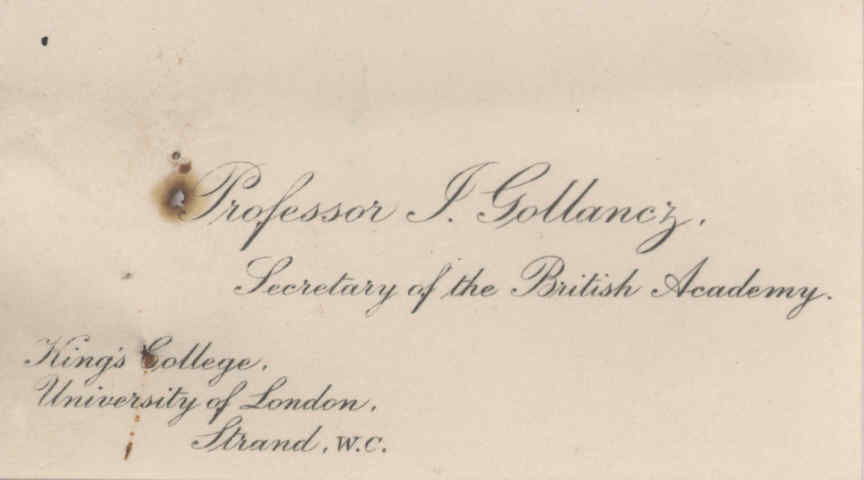 Professor I. Gollancz.
Secretary of the British Academy.
King's College.
University of London.
Strand. W.C.